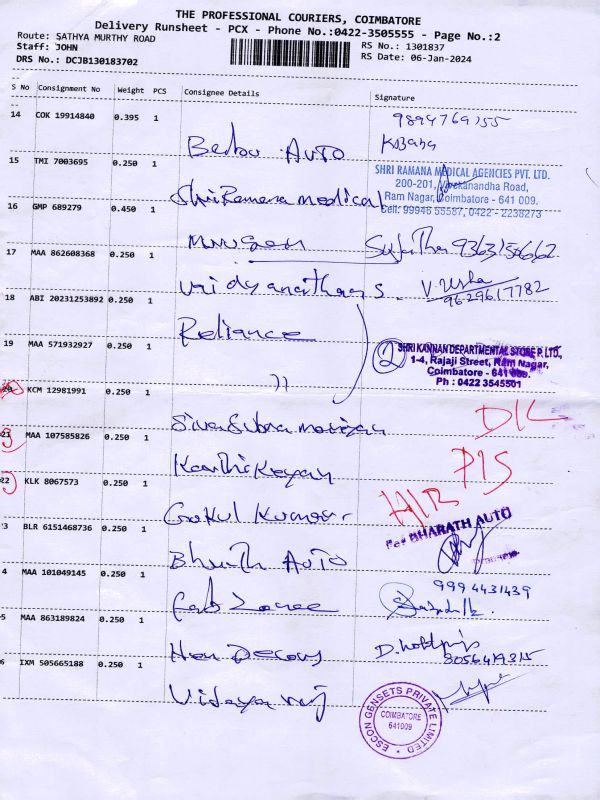 THE PROFESSIONAL COURIERS, COIMBATORE
Delivery Runsheet - PCX - Phone No.:0422-3505555 - Page No.:2
Route: SATHYA MURTHY ROAD
RS No.: 1301837
Staff: JOHN
RS Date: 06-Jan-2024
DRS No.: DCJB130183702
S No Consignment No Weight PCS Consignee Details Signature
14 COK 19914840 0.395 1
9894769155
Auto
15 TMI 7003695 0.250 1
SHRI RAMANA MEDICAL AGENCIES PVT. LTD.
200-201, Vivekanandha Road,
Ram Nagar, Coimbatore - 641 009.
Cell: 99946 55587, 0422 - 2238273
Shri Ramana medical
16 GMP 689279 0.450 1
Murugesn
Sujatha
17 MAA 862608368 0.250 1
Vaidyanathan S.
V. Usha
9629617782
18 ABI 20231253892 0.250 1
Reliance
19 MAA 571932927 0.250 1
2
SHRI KANNAN DEPARTMENTAL STORE P. LTD.,
1-4, Rajaji Street, Ram Nagar,
Coimbatore - 641 009.
Ph : 0422 3545501
"
20 KCM 12981991 0.250 1
D/L
Sivasubramaniyan
21 MAA 107585826 0.250 1
P/S
Karthikeyan
22 KLK 8067573 0.250 1
Gokul Kumar
3 BLR 6151468736 0.250 1
For BHARATH AUTO
Bharath Auto
4 MAA 101049145 0.250 1
9994431439
Fab
5 MAA 863189824 0.250 1
8056419315
6 IXM 505665188 0.250 1
ESCON GENSETS PRIVATE LIMITED
COIMBATORE
641009